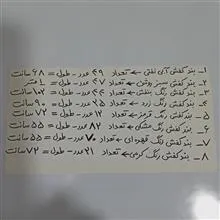 ۱- بند کفش آبی نفتی ← تعداد ۴۹ عدد - طول = ۶۸ سانت
۲- بند کفش سبز روشن ← تعداد ۴۷ عدد - طول =
۳- بند کفش بنفش ← تعداد ۴۴ عدد - طول = ۱۰۲ سانت
۴- بند کفش رنگ زرد ← تعداد ۲۵ عدد - طول = ۹۰ سانت
۵- بند کفش رنگ قرمز ← تعداد ۱۲ عدد - طول = ۷۲ سانت
۶- بند کفش رنگ مشکی ← تعداد ۸۲ عدد - طول = ۵۵ سانت
۷- بند کفش رنگ قهوه ای ← تعداد ۷۰ عدد - طول = ۵۵ سانت
۸- بند کفش رنگ کرمی ← تعداد ۲۱ عدد - طول = ۷۲ سانت